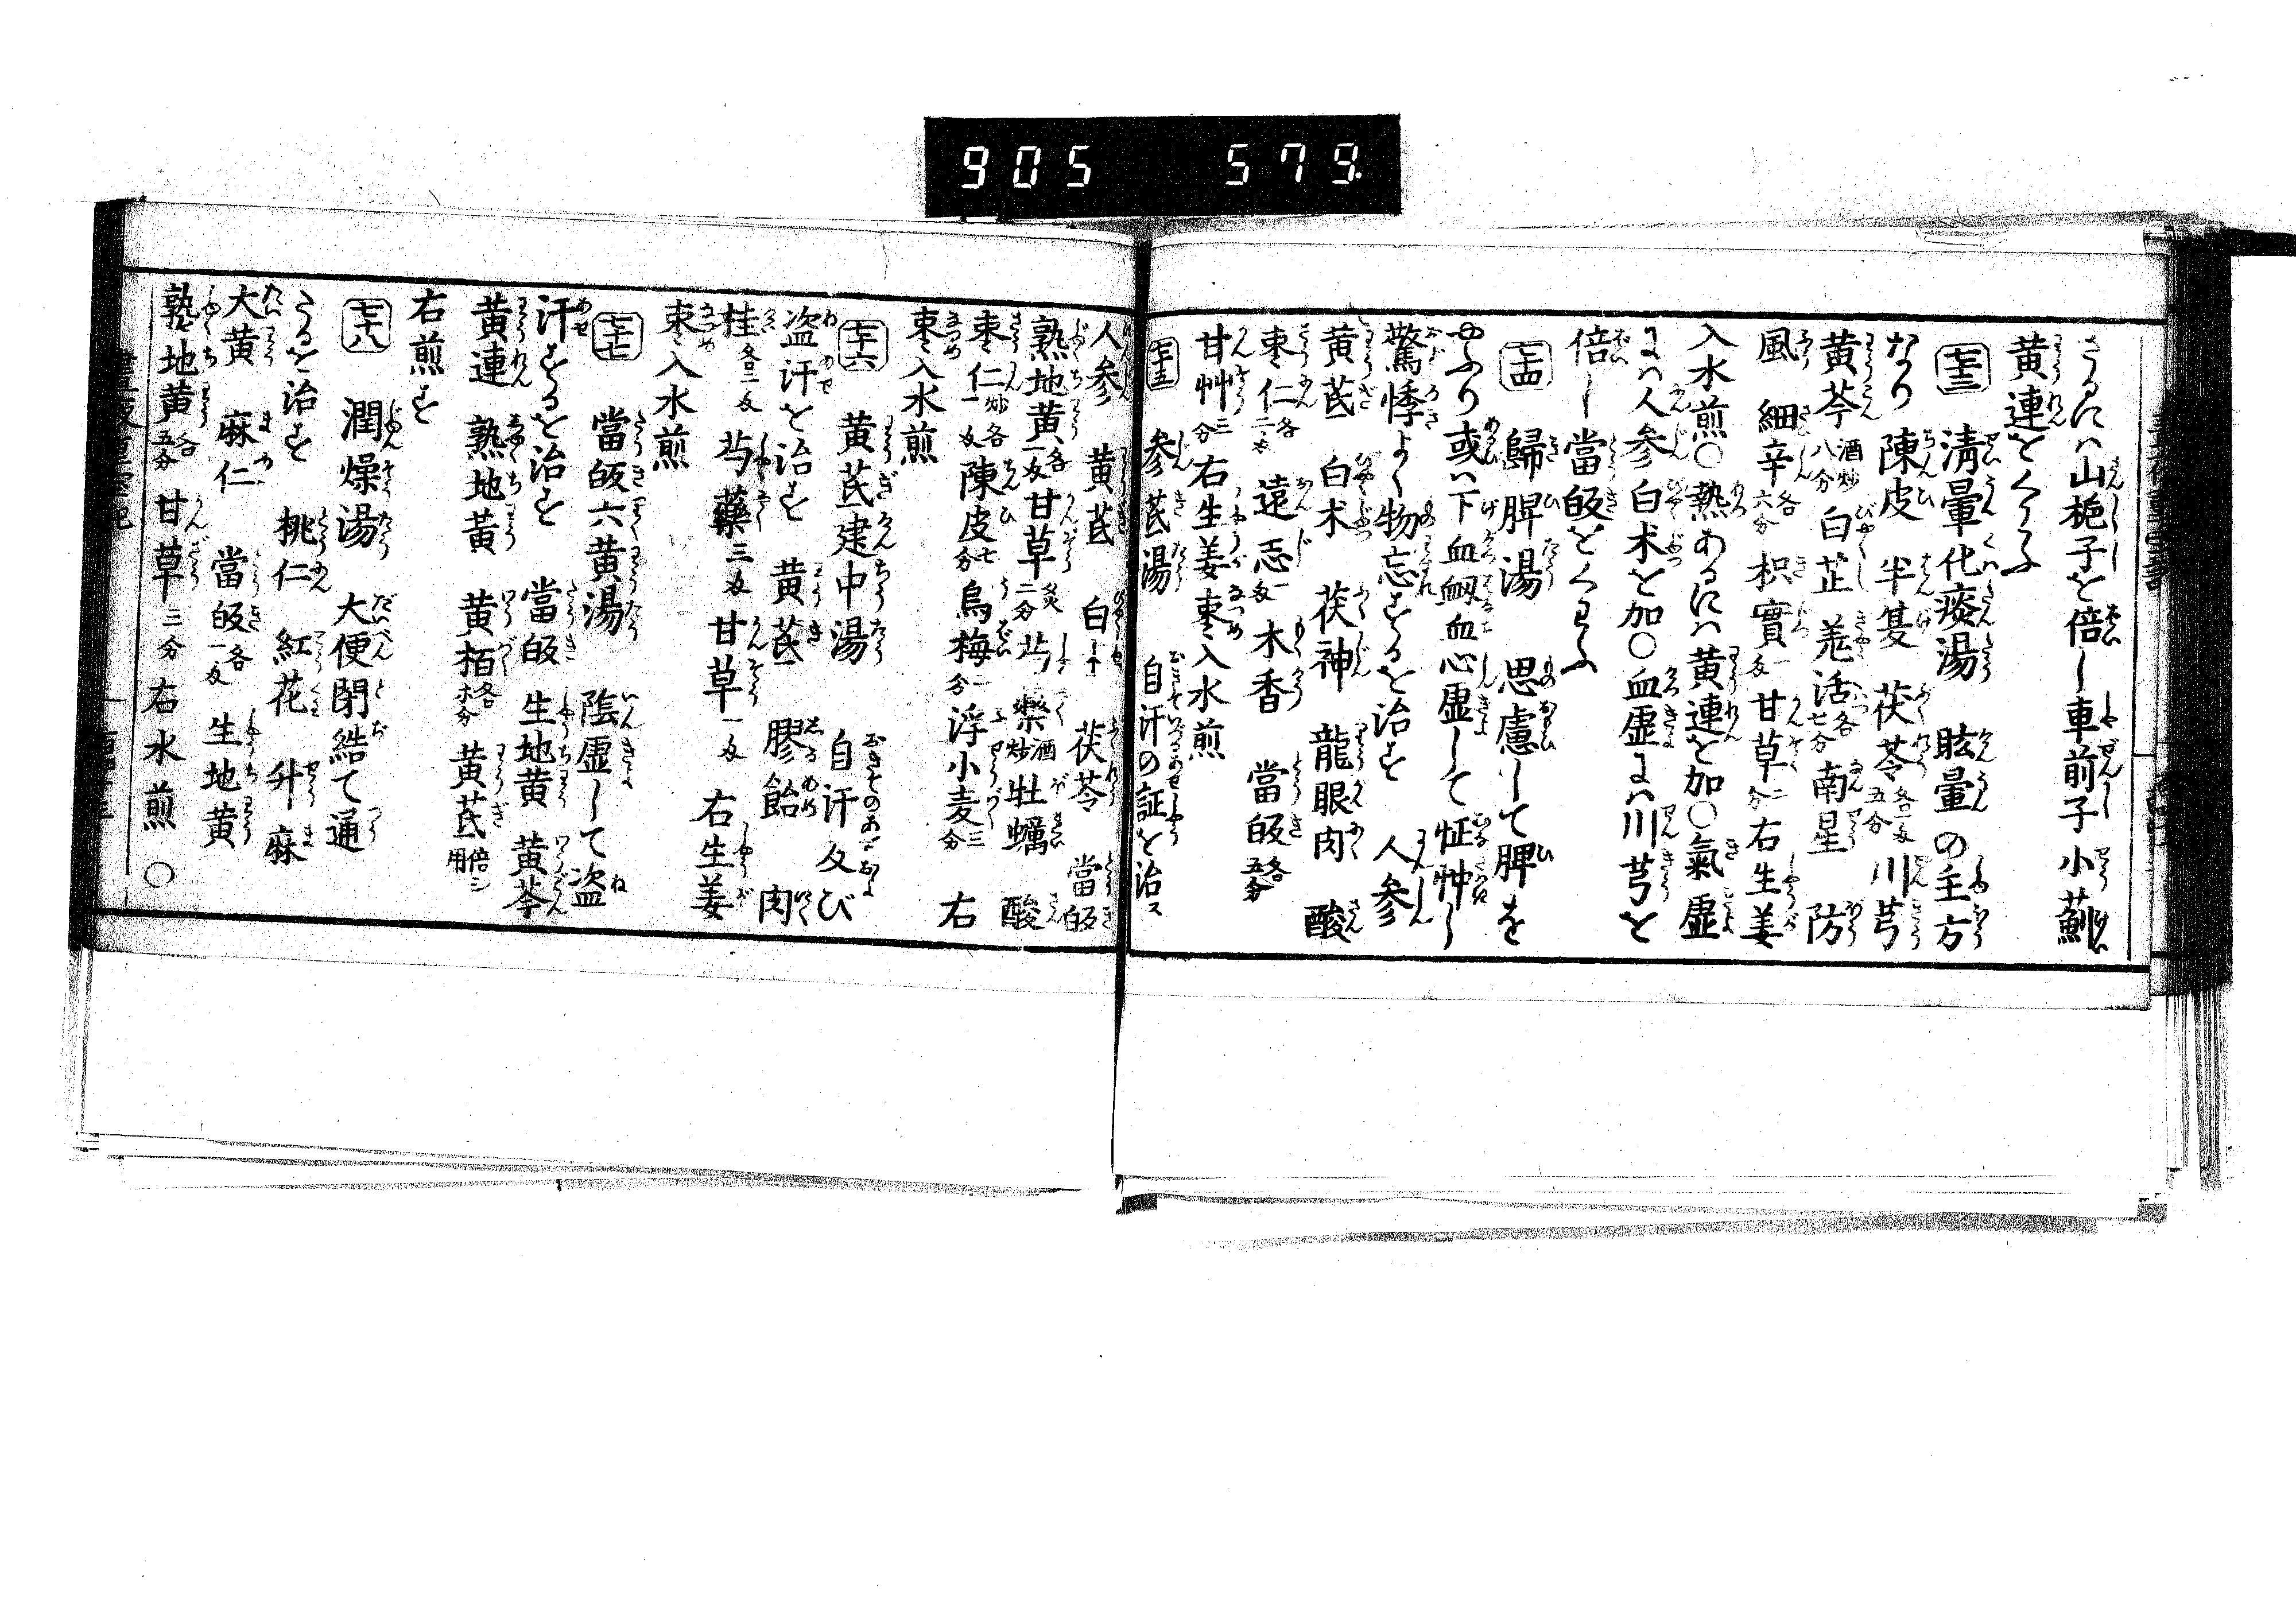 905 579.
さるには山梔子を倍し車前子小薊
黄連をくハふ
七十三 清暈化痰湯 眩暈の主方
なり 陳皮 半夏 茯苓各一匁五分 川芎
黄芩酒炒八分 白芷 羌活各七分 南星 防
風 細辛各六分 枳實一匁 甘草二分 右生姜
入水煎〇熱あるには黄連を加〇氣虚
には人参白朮を加〇血虚には川芎を
倍し當皈をくわふ
七十四 歸脾湯 思慮して脾を
やふり或は下血衂血心虚して怔忡し
驚悸よく物忘するを治す 人参
黄芪 白朮 茯神 龍眼肉 酸
枣仁各二匁 遠志一匁 木香 當皈各五分
甘艸三分 右生姜枣入水煎
七十五 参芪湯 自汗の証を治ス
人参 黄芪 白朮 茯苓 當皈
熟地黄各一匁 甘草炙二分 芍藥酒炒 牡蠣 酸
枣仁炒各一匁 陳皮七分 烏梅一分 浮小麦三分 右
枣入水煎
七十六 黄芪建中湯 自汗及び
盗汗を治す 黄芪 膠飴 肉
桂各二匁 芍藥三匁 甘草一匁 右生姜
枣入水煎
七十七 當皈六黄湯 陰虚して盗
汗するを治す 當皈 生地黄 黄芩
黄連 熟地黄 黄栢各等分 黄芪倍シ用
右煎す
七十八 潤燥湯 大便閉結て通
さるを治す 桃仁 紅花 升麻
大黄 麻仁 當皈各一匁 生地黄
熟地黄各五分 甘草三分 右水煎 〇